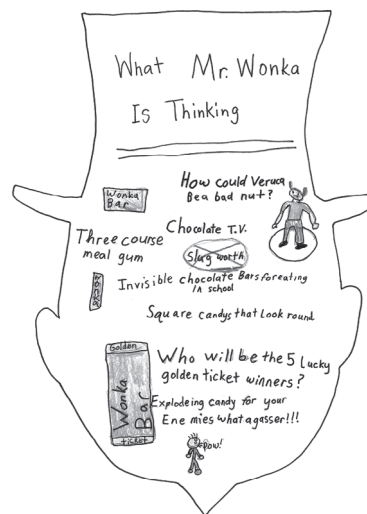 What Mr. Wonka
Is Thinking
Wonka
Bar
How could Veruca
Be a bad nut?
Chocolate T.V.
Three course
meal gum
Slug worth
Invisible chocolate Bars for eating
in school
Square candys that look round
Golden
Wonka
Bar
ticket
Who will be the 5 lucky
golden ticket winners?
Explodeing candy for your
Ene mies what a gasser!!!
POW!